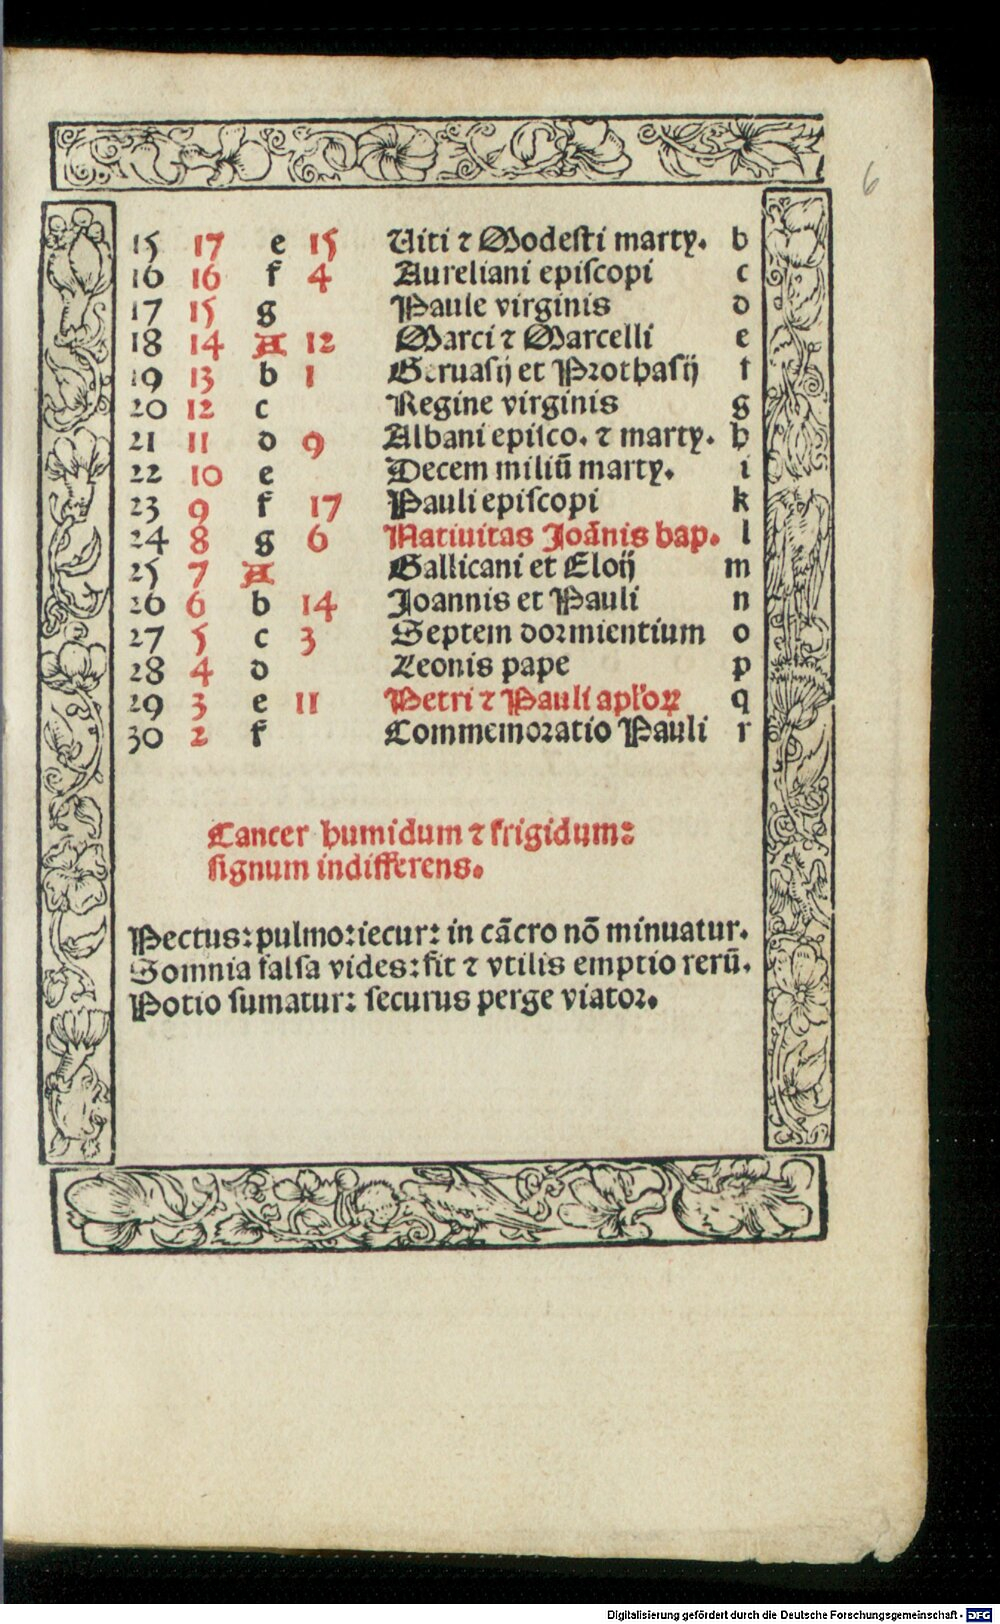 6
15 17 e 15 Uiti ⁊ Modesti marty. b
16 16 f 4 Aureliani episcopi c
17 15 g Paule virginis d
18 14 A 12 Marci ⁊ Marcelli e
19 13 b 1 Geruasij et Prothasij f
20 12 c Regine virginis g
21 11 d 9 Albani episco. ⁊ marty. h
22 10 e Decem miliū marty. i
23 9 f 17 Pauli episcopi k
24 8 g 6 Natiuitas Joānis bap. l
25 7 A Gallicani et Eloij m
26 6 b 14 Joannis et Pauli n
27 5 c 3 Septem dormientium o
28 4 d Leonis pape p
29 3 e 11 Petri ⁊ Pauli apl'oꝝ q
30 2 f Commemoratio Pauli r
Cancer humidum ⁊ frigidum:
signum indifferens.
Pectus: pulmo: iecur: in cācro nō minuatur.
Somnia falsa vides: fit ⁊ vtilis emptio rerū.
Potio sumatur: securus perge viator.
Digitalisierung gefördert durch die Deutsche Forschungsgemeinschaft - DFG